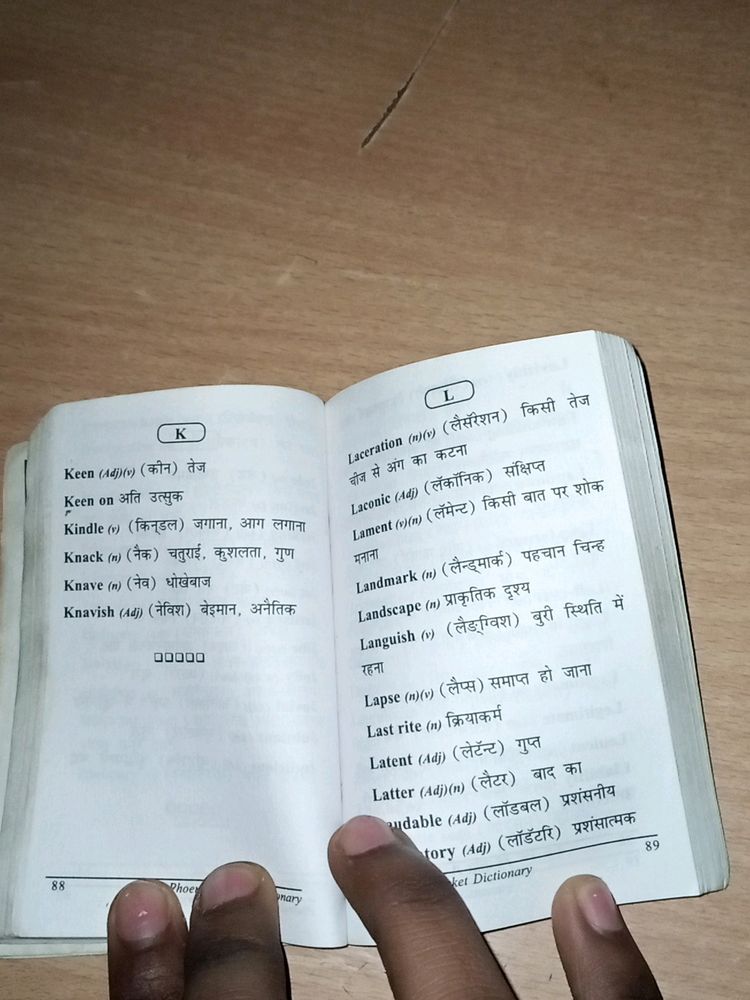 K
Keen (Adj)(v) (कीन) तेज
Keen on अति उत्सुक
Kindle (v) (किन्डल) जगाना, आग लगाना
Knack (n) (नैक) चतुराई, कुशलता, गुण
Knave (n) (नेव) धोखेबाज
Knavish (Adj) (नेविश) बेइमान, अनैतिक
❑❑❑❑❑
88
L
Laceration (n)(v) (लैसॅरेशन) किसी तेज
चीज से अंग का कटना
Laconic (Adj) (लॅकॉनिक) संक्षिप्त
Lament (v)(n) (लॅमेन्ट) किसी बात पर शोक
मनाना
Landmark (n) (लैन्ड्मार्क) पहचान चिन्ह
Landscape (n) प्राकृतिक दृश्य
Languish (v) (लैङ्ग्विश) बुरी स्थिति में
रहना
Lapse (n)(v) (लैप्स) समाप्त हो जाना
Last rite (n) क्रियाकर्म
Latent (Adj) (लेटॅन्ट) गुप्त
Latter (Adj)(n) (लैटर) बाद का
udable (Adj) (लॉडबल) प्रशंसनीय
tory (Adj) (लॉडॅटरि) प्रशंसात्मक
ket Dictionary 89